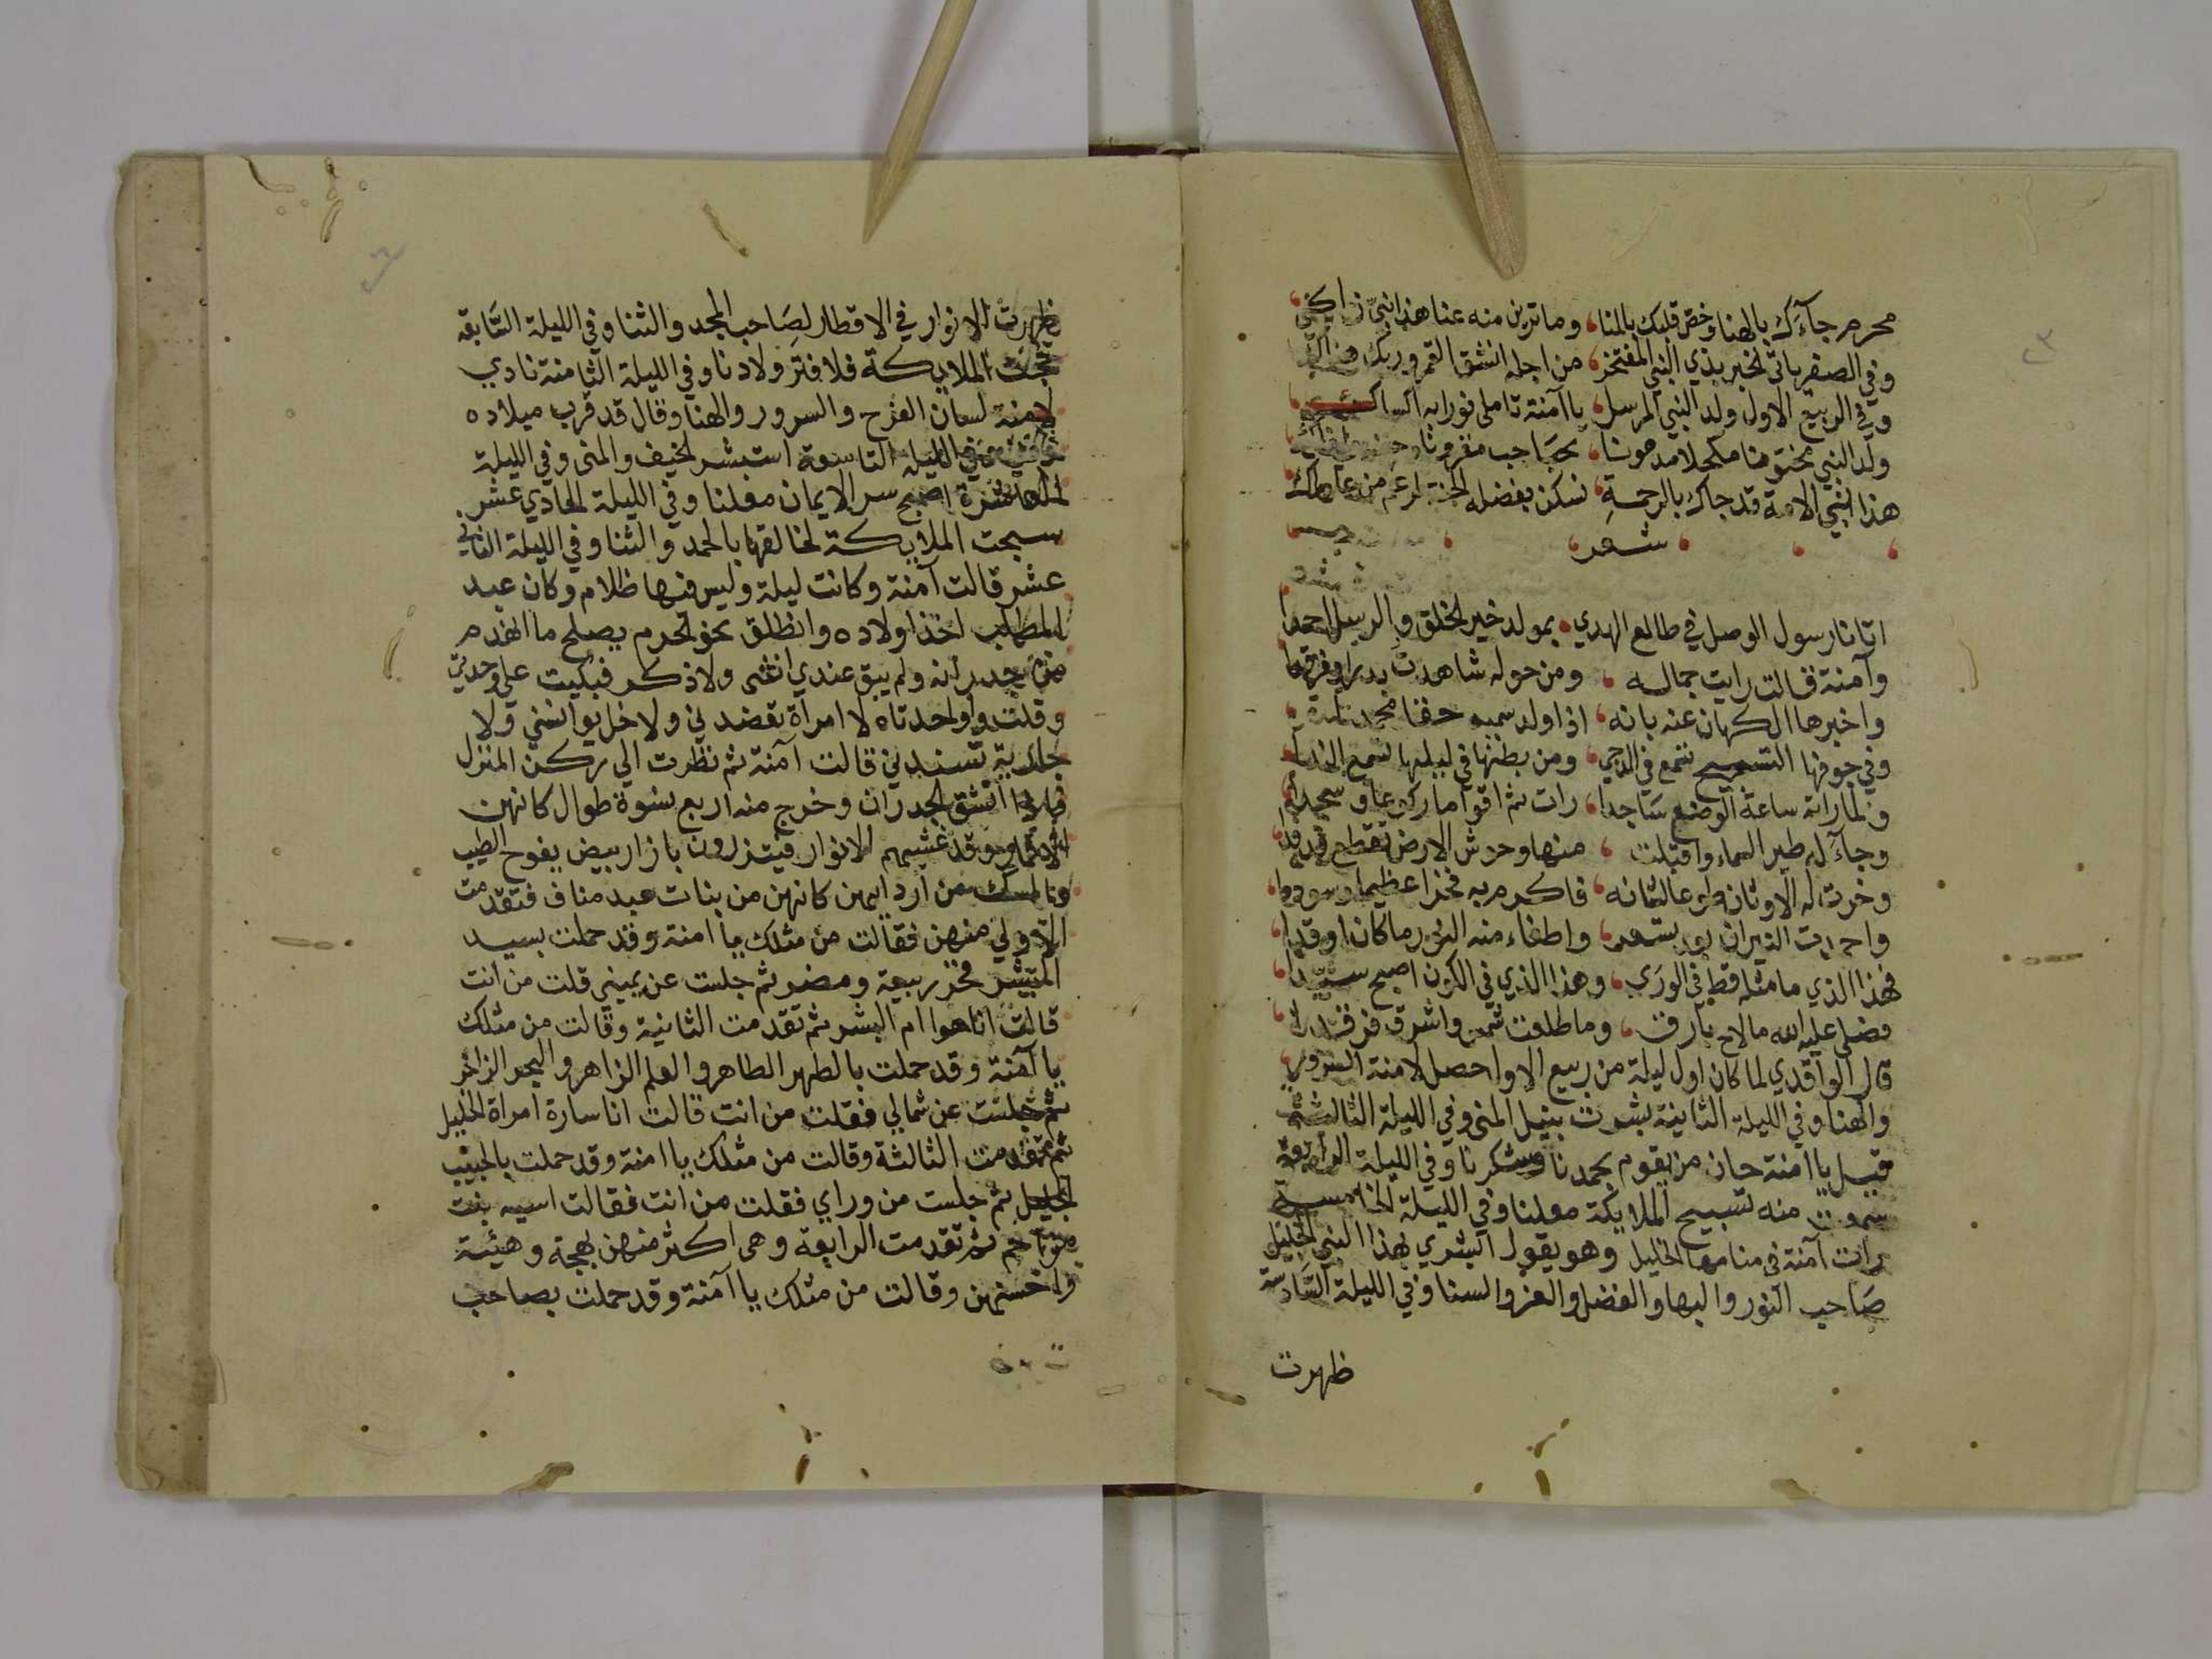 محرم جآءك بالهنا وخص قلبك بالمنا، وما ترين منه عنا هذا نبي
وفي الصفر ياتي لخبر بذي النبي المفتخر، من اجله انشق القمر وربك
وفي الربيع الاول ولد النبي المرسل، يا آمنة تاملي نوراً به
ولد النبي مختونا مكحلا مدهونا، بحجاجب مقرونا
هذا النبي الامة قد جاك بالرحمة، نسكن بفضله الجنة
شعر
اتانا رسول الوصل في طالع الهدي، بمولد خير الخلق والرسل احمدا
وآمنة قالت رايت جماله، ومن حوله شاهدت بدرا وفرقدا
واخبرها الكهان عنه بانه، اذا ولد سميه حقا محمد
وفي جوفها التسبيح تسمع في الدجي، ومن بطنها في ليلها تسمع الندا
ولما راته ساعة الوضع ساجدا، رات ثم اقواما ركوعا وسجدا
وجآء له طير السماء واقبلت، منها وحوش الارض تقطع
وخرت له الاوثان طوعا لشانه، فاكرم به فخرا عظيما وسوددا
النيران، واطفاء منه النور ما كان اوقدا
فهذا الذي ما مثله قط في الوري، وهذا الذي في الكون اصبح سيدا
فصلي عليه الله ما لاح بارق، وما طلعت شمس واشرق فرقدا
قال الواقدي لما كان اول ليلة من ربيع الاول حصل لامنة السرور
والهنا وفي الليلة الثانية بشرت بنيل المني وفي الليلة الثالثة
قيل يا امنة حان من يقوم بحمدنا وشكرنا وفي الليلة الرابعة
سمعت منه تسبيح الملايكة معلنا وفي الليلة الخامسة
رات آمنة في منامها الخليل وهو يقول ابشري بهذا النبي الجليل
صاحب النور والبها والفضل والعز والسنا وفي الليلة السادسة
ظهرت
ظهرت الانوار في الاقطار لصاحب المجد والثنا وفي الليلة السابعة
الملايكة فلا فتر ولا دنا وفي الليلة الثامنة نادي
لامنة لسان الفرح والسرور والهنا وقال قد قرب ميلاده
وفي الليلة التاسعة استبشر الخيف والمني وفي الليلة
العاشرة اصبح سر الايمان معلنا وفي الليلة الحادي عشر
سبحت الملايكة لخالقها بالحمد والثنا وفي الليلة الثاني
عشر قالت آمنة وكانت ليلة وليس فيها ظلام وكان عبد
المطلب اخذ اولاده وانطلق نحو الحرم يصلح ما انهدم
من جدرانه ولم يبق عندي انثي ولا ذكر فبكيت علي وحدتي
وقلت واوحدتاه لا امراة تعضدني ولا خل يوانسني ولا
جارية تسندني قالت آمنة ثم نظرت الي ركن المنزل
فاذا انشق الجدران وخرج منه اربع نسوة طوال كانهن
الاقمار وقد غشيهم الانوار فيتزرون بازار بيض يفوح الطيب
والمسك من اردايهن كانهن من بنات عبد مناف فتقدمت
الاولي منهن فقالت من مثلك يا امنة وقد حملت بسيد
البشر فخر ربيعة ومضر ثم جلست عن يميني قلت من انت
قالت انا حوا ام البشر ثم تقدمت الثانية وقالت من مثلك
يا آمنة وقد حملت بالطهر الطاهر والعلم الزاهر والبحر الزاخر
ثم جلست عن شمالي فقلت من انت قالت انا سارة امراة الخليل
ثم تقدمت الثالثة وقالت من مثلك يا امنة وقد حملت بالحبيب
الجليل ثم جلست من وراي فقلت من انت فقالت اسيه بنت
مزاحم ثم تقدمت الرابعة وهي اكثر منهن بهجة وهيئة
واحسنهن وقالت من مثلك يا آمنة وقد حملت بصاحب